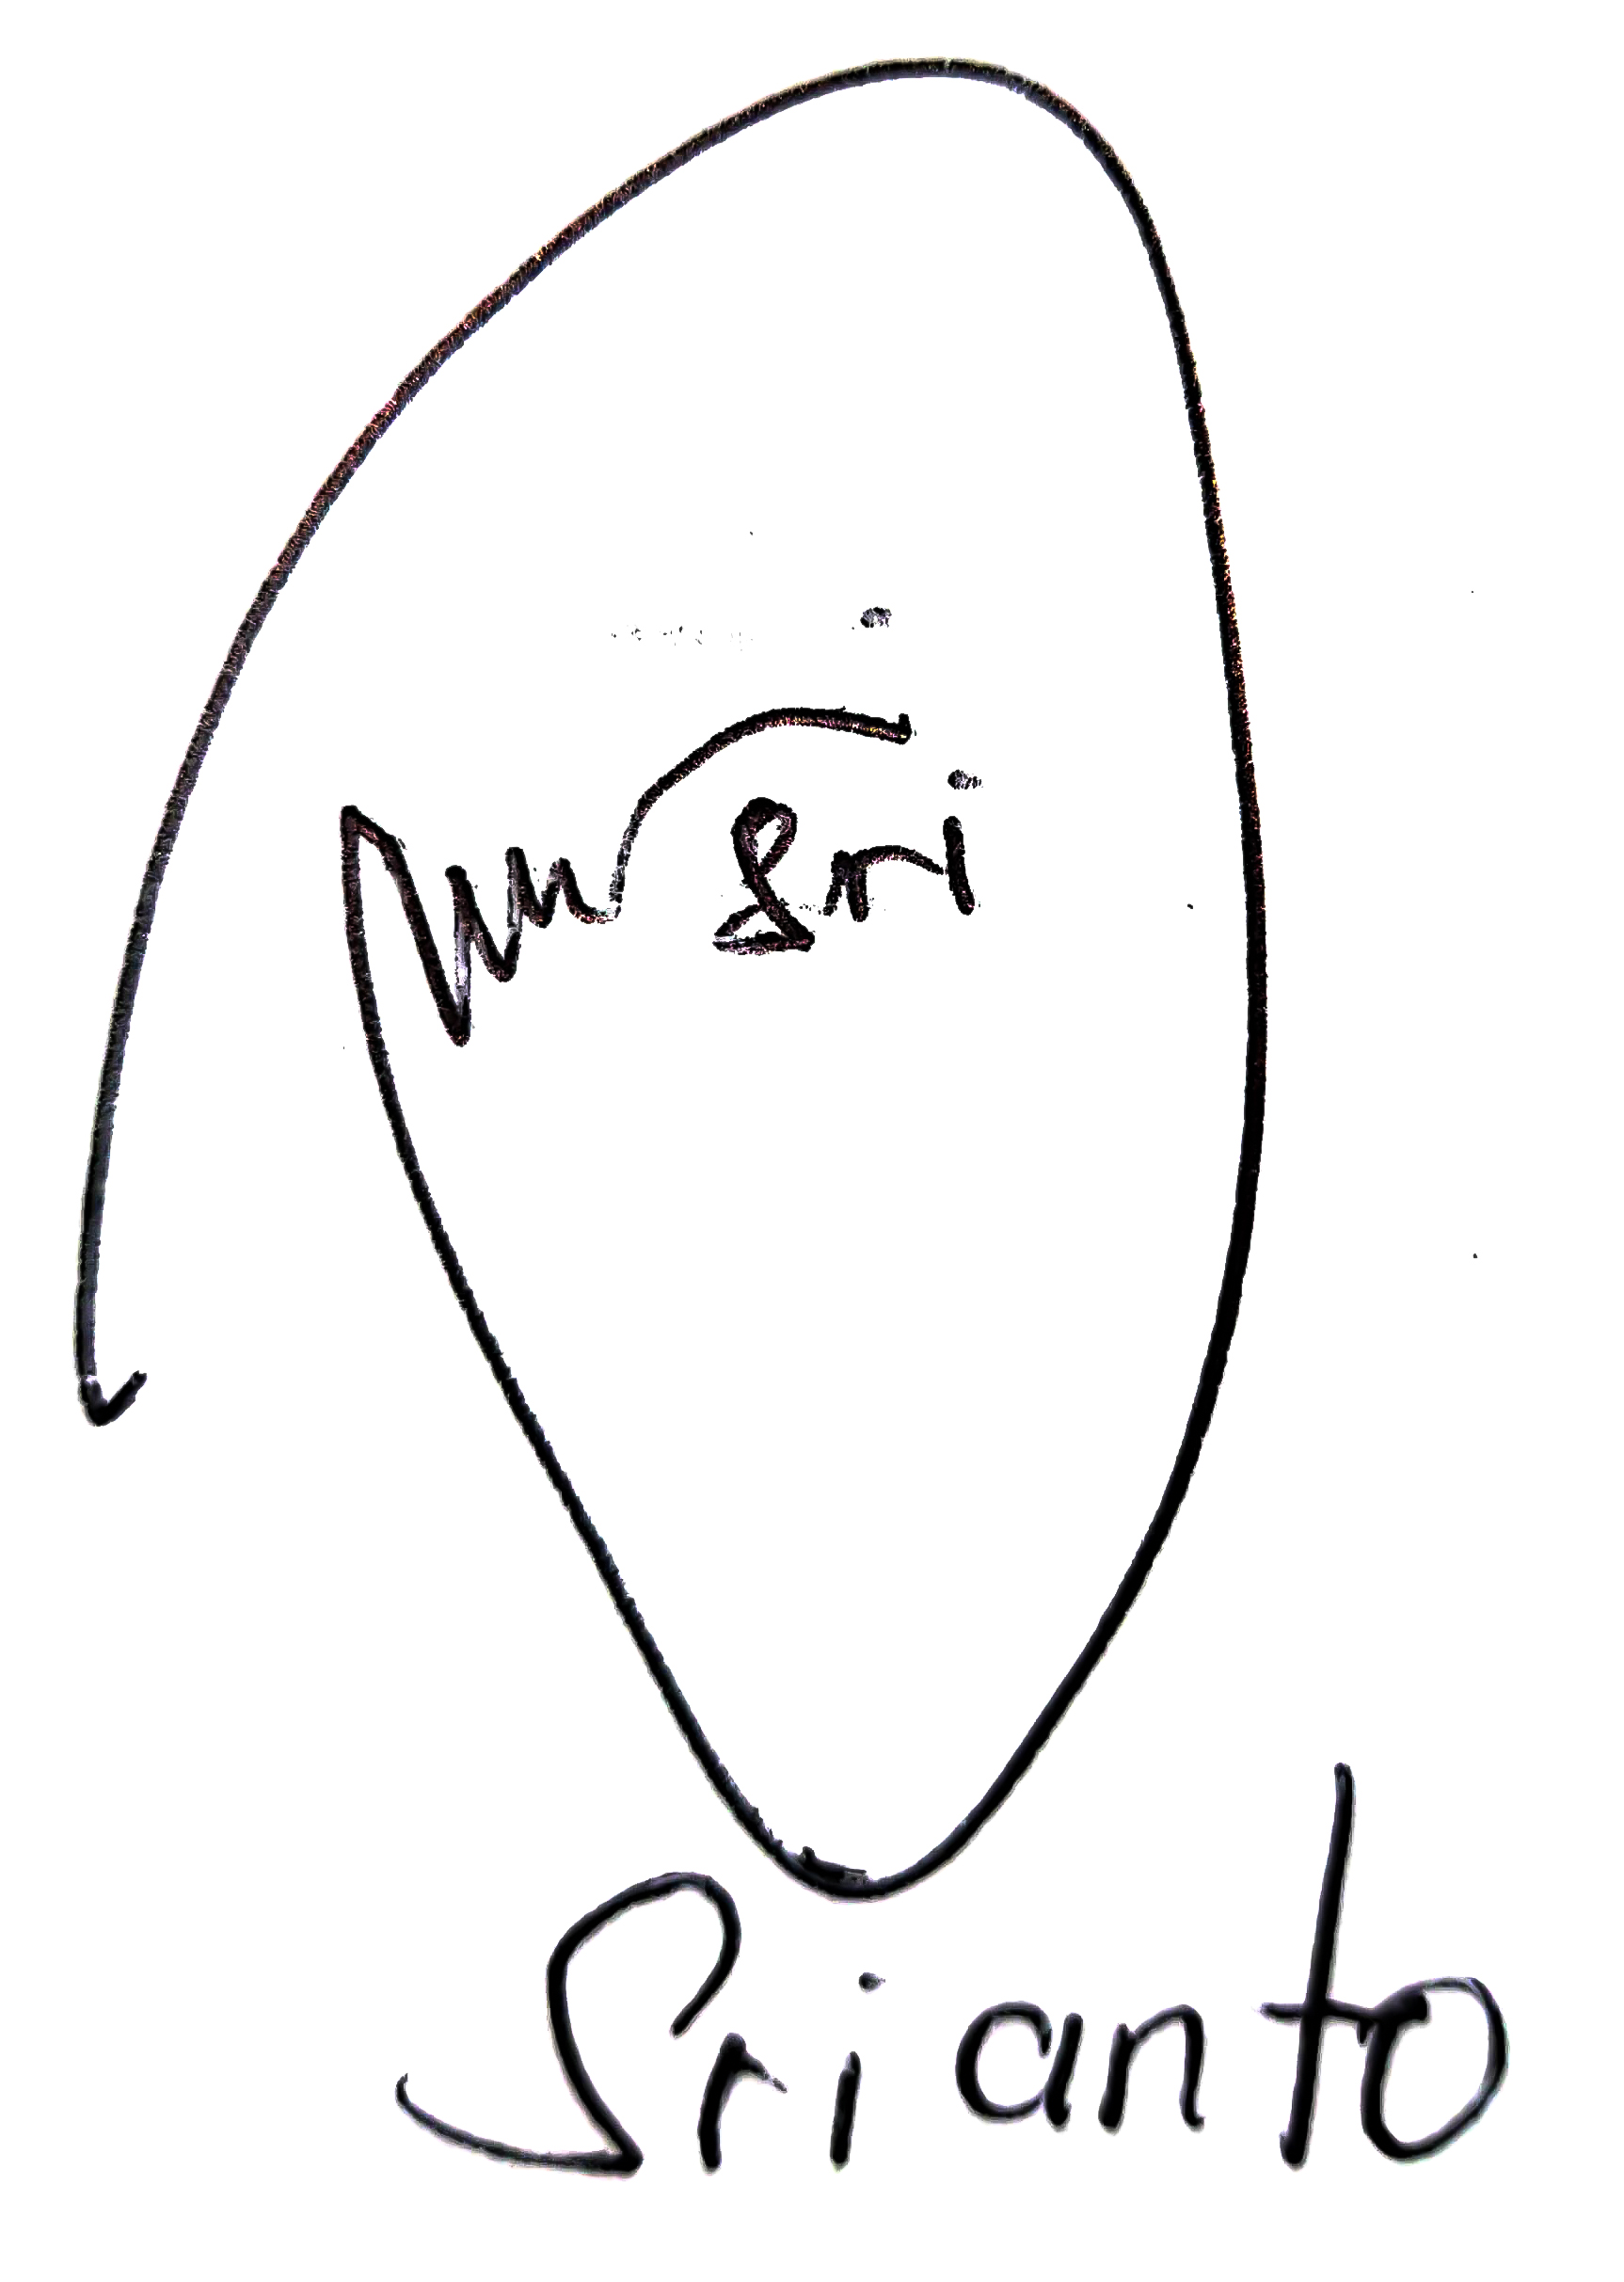 Sri
Srianto